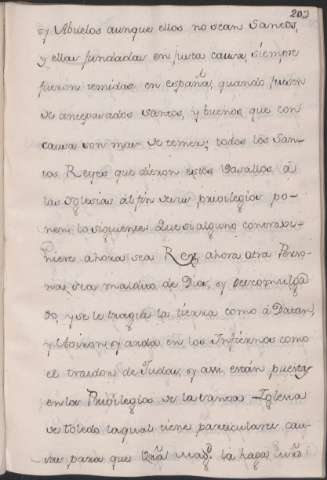 203
y Abuelos aunque ellos no sean Santos,
y ellas fundadas en justa causa, siempre
fueron temidas en españa, quando fuesen
de antepasados Santos, y buenos que con
causa son mas de temer; todos los San-
tos Reyes que dieron estos Vasallos á
las Iglesias al fin de su privilegio po-
nen lo siguiente. Que si alguno contravi-
niere ahora sea Rey, ahora otra Perso-
na, sea maldito de Dios, y descomulga-
do y se le trague la tierra como á Datan,
y Abiron, y anda en los Infiernos como
el traidor de Judas, y assi están puestas
en los Privilegios de la santa Iglesia
de toledo la qual tiene particulares cau-
sas para que Vrã. mag.d la haga